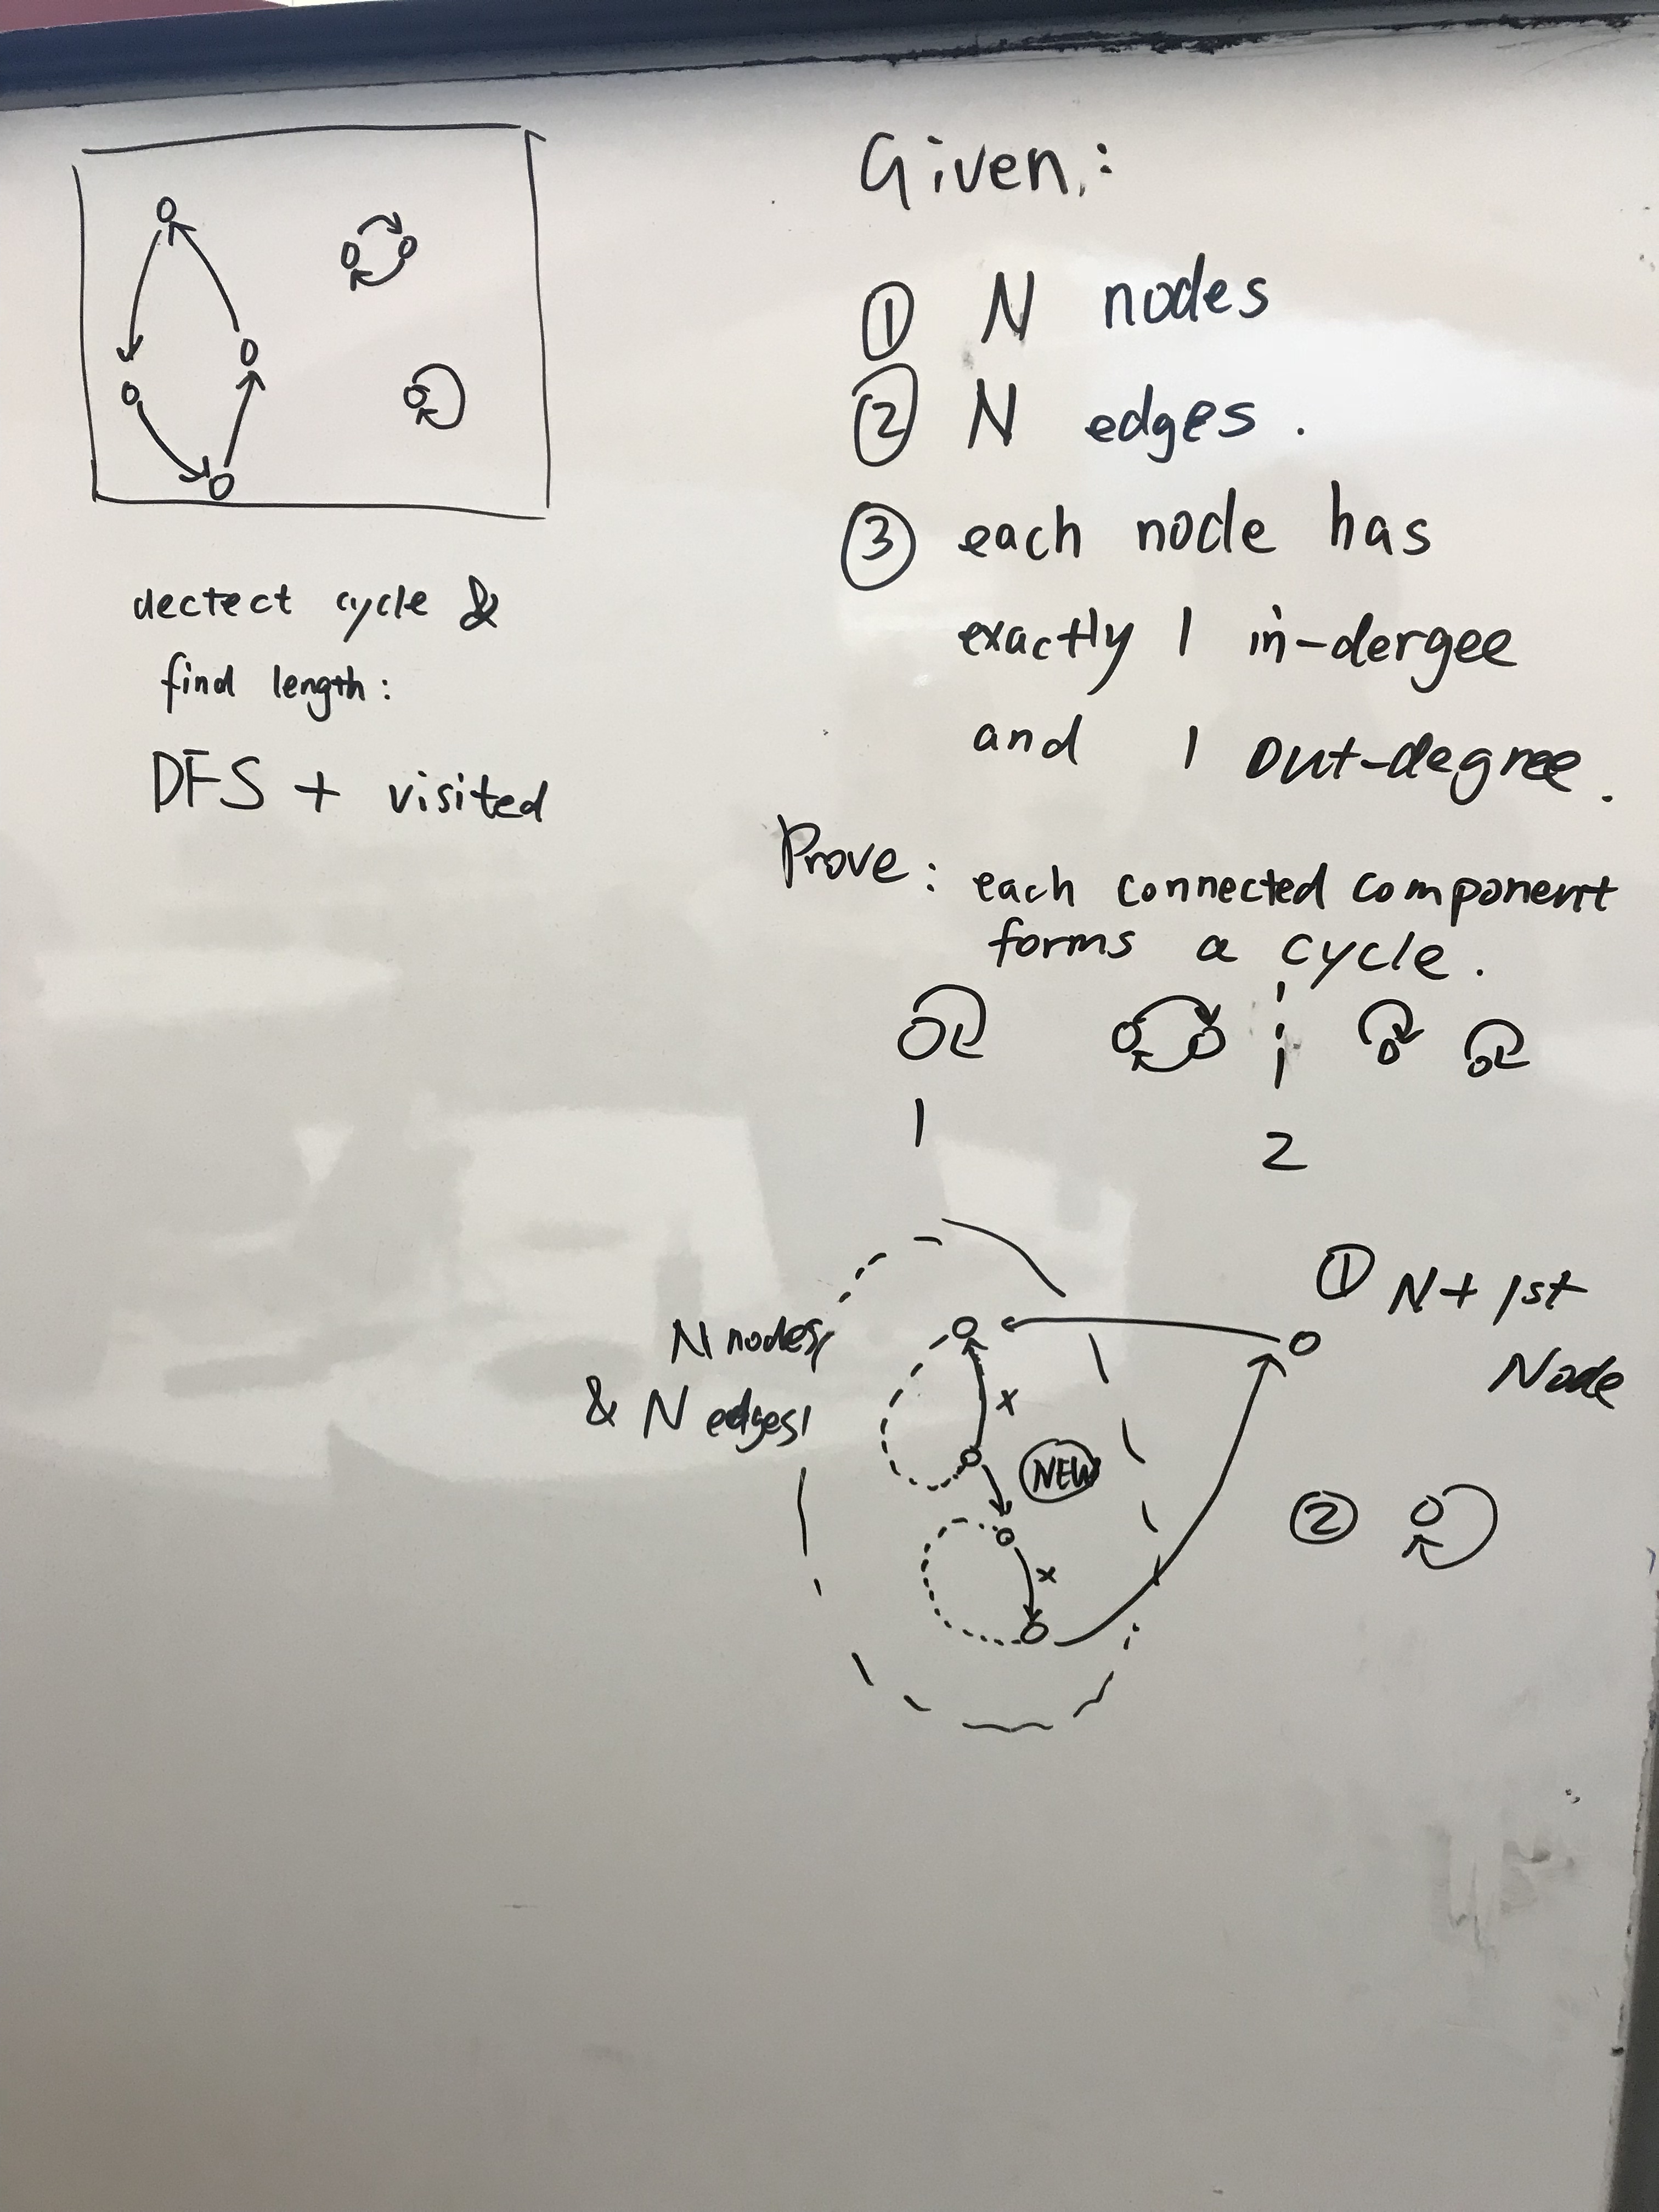 dectect cycle &
find length:
DFS + visited
Given:
① N nodes
② N edges.
③ each node has
exactly 1 in-dergee
and 1 out-degree.
Prove: each connected component
forms a cycle.
1
2
N nodes
& N edges
① N+1st
Node
x
NEW
x
②